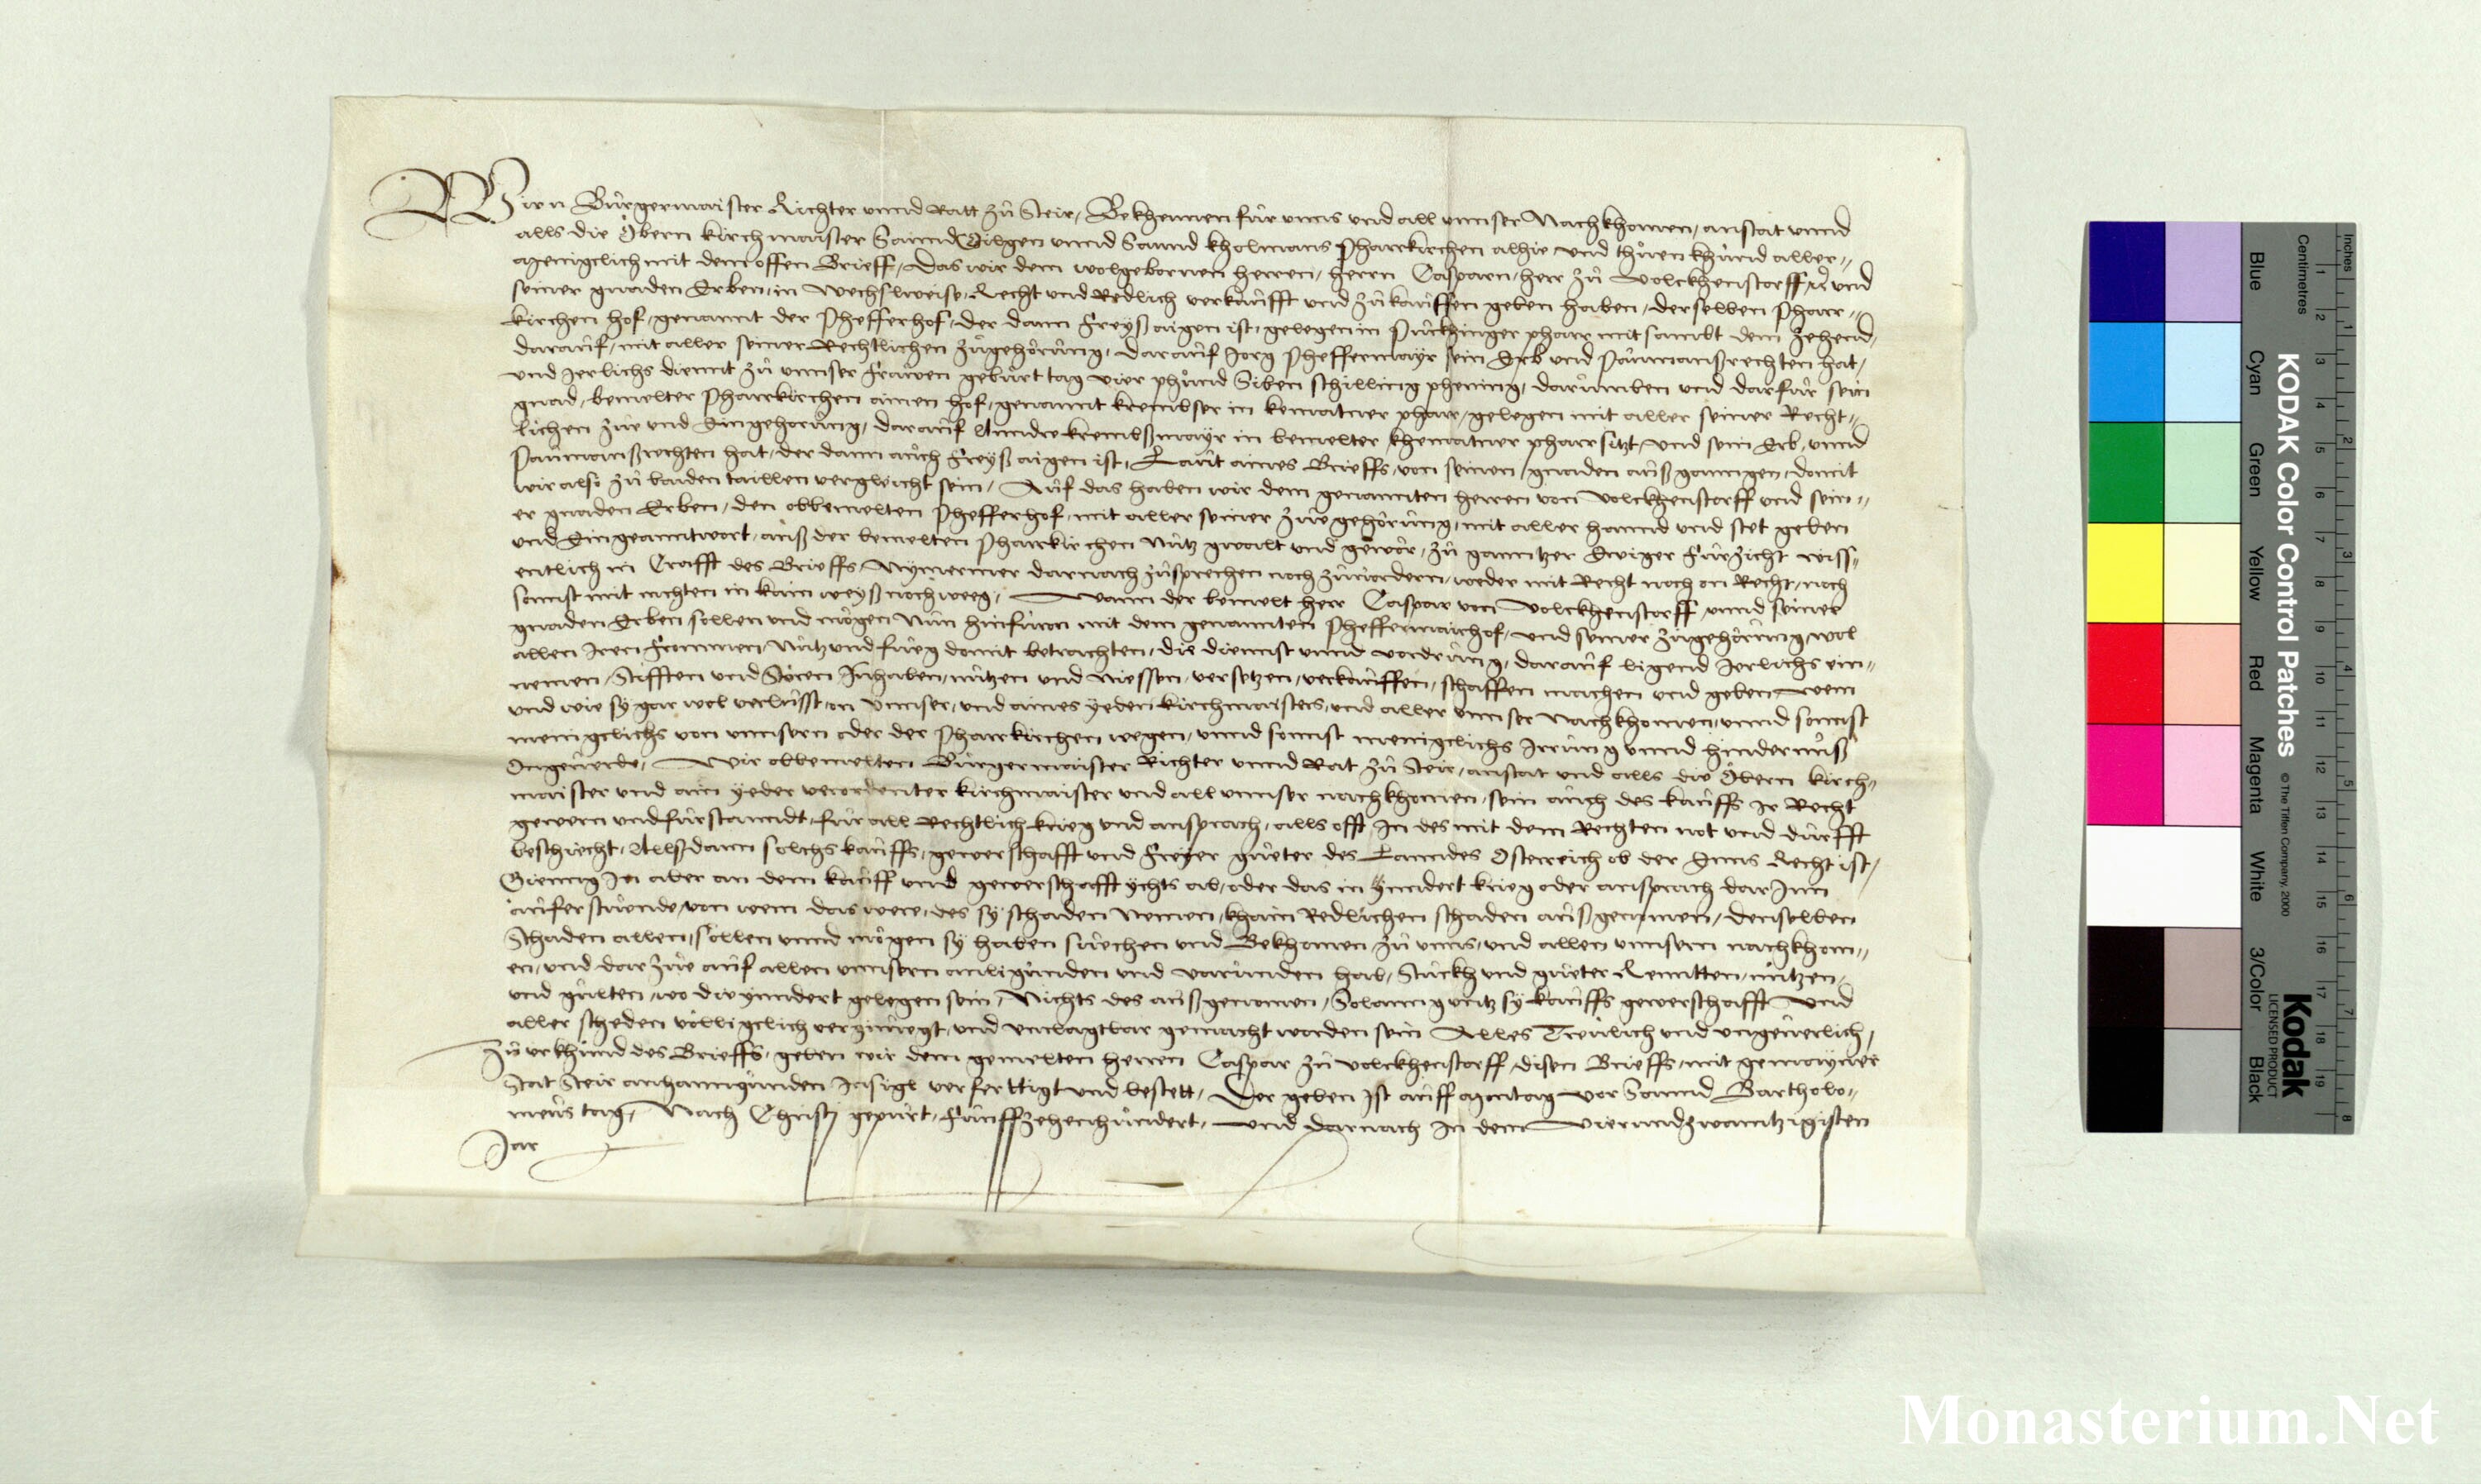 Wir n Burgermaister Richter unnd Ratt zu Steir, Bekhennen fur unns und all unnser Nachkhomen, anstat unnd
alls die Obern kirchmaister Sannd Gilgen unnd Sannd Kholmans Pharrkirchen alhie und thuen khund aller„
menigclich mit dem offen Brieff, Das wir dem wolgebornen herren, herrn Casparn, herr zu Volckhenstorff und
seiner gnaden Erben, in wechslweise, Recht und Redlich verkaufft und zukauffen geben haben, derselben Pharr„
kirchen hof, genannt der Phefferhof, der dann Freyß aigen ist, gelegen in Puckhinger pharr mit sambt dem Zehend,
darauf, mit aller seiner Rechtlichen zugehorung, darauf Jorg Pheffermayr sein Erb und Paumanßrechten hat,
und Jerlichs diennt zu unnser Frawen geburt tag vier phund Siben schilling phening, darumben und darfur sein
gnad, bemelter Pharrkirchen ainen hof, genannt krembser in kematner pharr, gelegen mit aller seiner Recht„
lichen zue und Eingehorung, darauf Anndre krembßmayr in bemelter khematner pharr sitzt, und sein Erb, unnd
Paumanßrechten hat, der dann auch Freyß aigen ist, Laut aines Brieffs, von seinen gnaden außganngen, domit
wir also zu baiden taillen vergleicht sein, Auf das haben wir dem genannten herren von Volckhenstorff und sein„
er gnaden Erben, den obbemelten Phefferhof, mit aller seiner zuegehorung, mit aller hannd und stet geben
und Eingeanntwort, auß der bemelten Pharrkirchen Nutz gwalt und gewor, zu ganntzer Ewiger Furzicht wiss„
entlich in Crafft des Brieffs, Nymermer darnach zusprechen noch zuvordern, weder mit Recht noch on Recht, noch
sonnst mit nichten in kain weyß noch weeg, Wann der bemelt herr Caspar von Volckhenstorff unnd seiner
gnaden Erben, sollen und mogen Nun hinfuron mit dem genannten Pheffermairhof, und seiner zugehorung, wol
allen Iren Frommen, Nutz und fueg domit betrachten, die diennst unnd vordrung, darauf ligend Jerlichs ein„
nemen, Stifften und Storen Inhaben, nutzen und Niessen, versetzen, verkauffen, schaffen machen und geben wem
und wie sy gar wol verlusst, on unnser, und aines yeden kirchmaisters, und aller unnser Nachkhomen, unnd sonnst
menigclichs von unnsern oder der Pharrkirchen wegen, unnd sonnst menigclichs Irrung unnd hindernuß
Ongeverde, Wir obbemelten Burgermaister Richter unnd Rat zu Steir, anstat und alls die Obern kirch„
maister und ain yeder verordenter kirchmaister und all unnser nachkhomen, sein auch des kauffs Ir Recht
gewern und furstanndt, fur all Rechtlich krieg und ansprach, alls offt In des mit dem Rechten not und durfft
beschiecht, Allß dann solchs kauffs, gewerschafft und Freyer gueter des Lanndes Osterreich ob der Enns Recht ist,
Gienng In aber an dem kauff und gewerschafft ychts ab, oder das in yndert krieg oder ansprach dar Inn
auferstuende, von wem das were, des sy schaden Nemen, khain Redlichen schaden außgenomen, denselben
Schaden allen, sollen unnd mogen sy haben suechen und Bekhomen zu unns, und allen unnsern nachkhom„
en, und dar zue auf allen unnsern anligunden und varunden hab, Stuckh und gueter Renntten, nutzen,
und gulten, wo die ynndert gelegen sein, Nichts des außgenomen, Solanng untz sy kauffs gewerschafft und
aller scheden volligclich vergnuegt, und unclagtbar gemacht worden sein Alles Treulich und ungeverlich,
Zu urkhund des Brieffs, geben wir dem gemelten herren Caspar zu Volckhenstorff, disen Brieffs, mit gemayner
Stat Steir anhanngunden Insigl verferttigt und bestett, Der geben Ist auff Montag vor Sannd Bartholo„
meus tag, Nach Christj gepurt, Funffzehenhundert, und darnach In dem vierundzwanntzigisten
Jar
KODAK Color Control Patches
© The Tiffen Company, 2000
Kodak
LICENSED PRODUCT
Inches
Centimetres
Blue
Cyan
Green
Yellow
Red
Magenta
White
3/Color
Black
1 2 3 4 5 6 7 8
1 2 3 4 5 6 7 8 9 10 11 12 13 14 15 16 17 18 19
Monasterium.Net